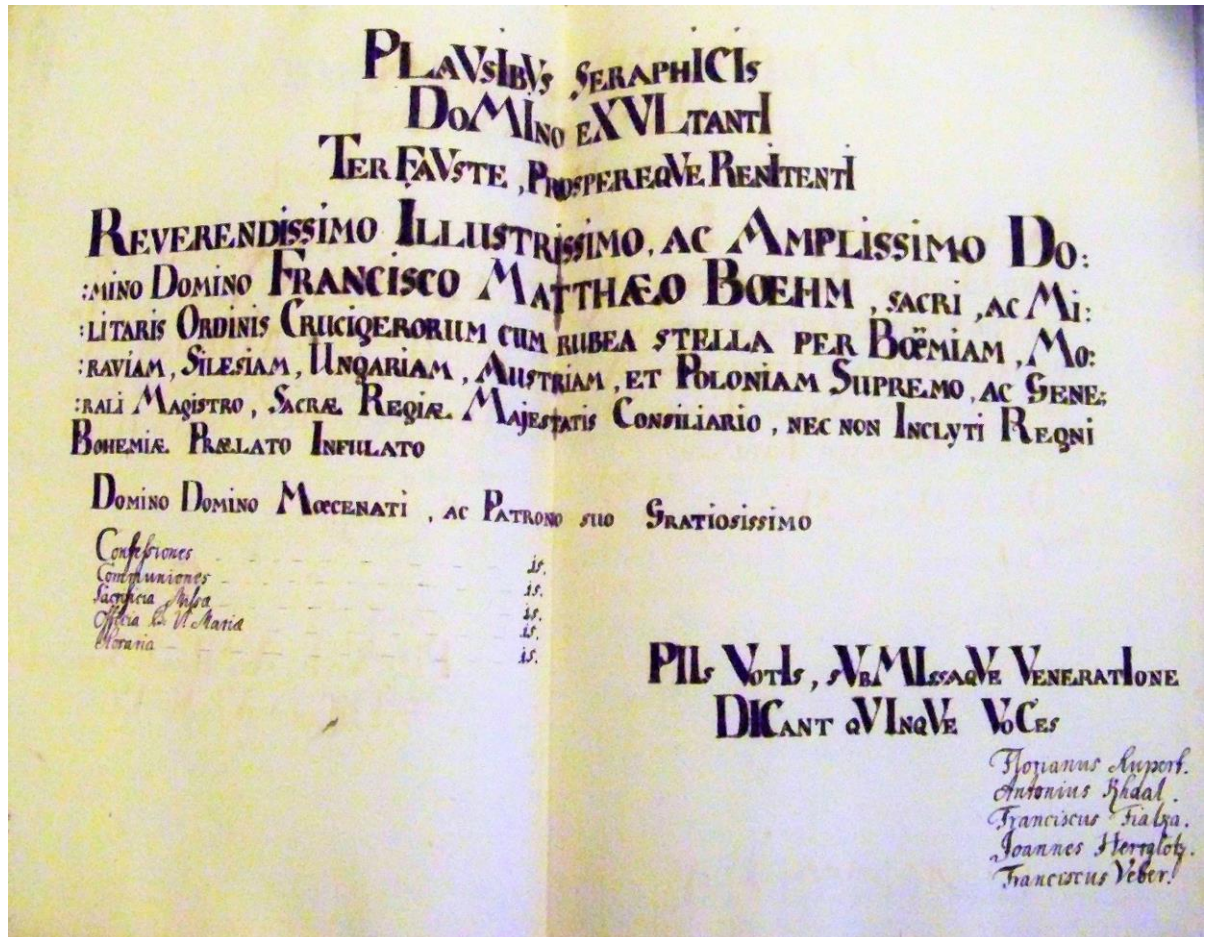 PLAVsIBVs SERAPHICIs
DoMINo EXVLTANTI
TER FAVSTE, PROSPEREQVE RENITENTI
REVERENDISSIMO ILLUSTRISSIMO, AC AMPLISSIMO DO:
:MINO DOMINO FRANCISCO MATTHÆO BŒHM, SACRI, AC MI:
:LITARIS ORDINIS CRUCIGERORUM CUM RUBEA STELLA PER BOËMIAM, MO:
:RAVIAM, SILESIAM, UNGARIAM, AUSTRIAM, ET POLONIAM SUPREMO, AC GENE:
:RALI MAGISTRO, SACRÆ REGIÆ MAJESTATIS CONSILIARIO, NEC NON INCLYTI REGNI
BOHEMIÆ PRÆLATO INFULATO
DOMINO DOMINO MŒCENATI, AC PATRONO SUO GRATIOSISSIMO
Confessiones 15.
Communiones 15.
Sacrificia Missæ 15.
Officia B. V. Mariæ 15.
Horaria 15.
PIIs VoTIs, sVBMIssAQVE VENERATIONE
DICANT QVINQVE VoCEs
Florianus Rupert.
Antonius Rhaal.
Franciscus Fialka.
Joannes Hergloz.
Franciscus Veber.